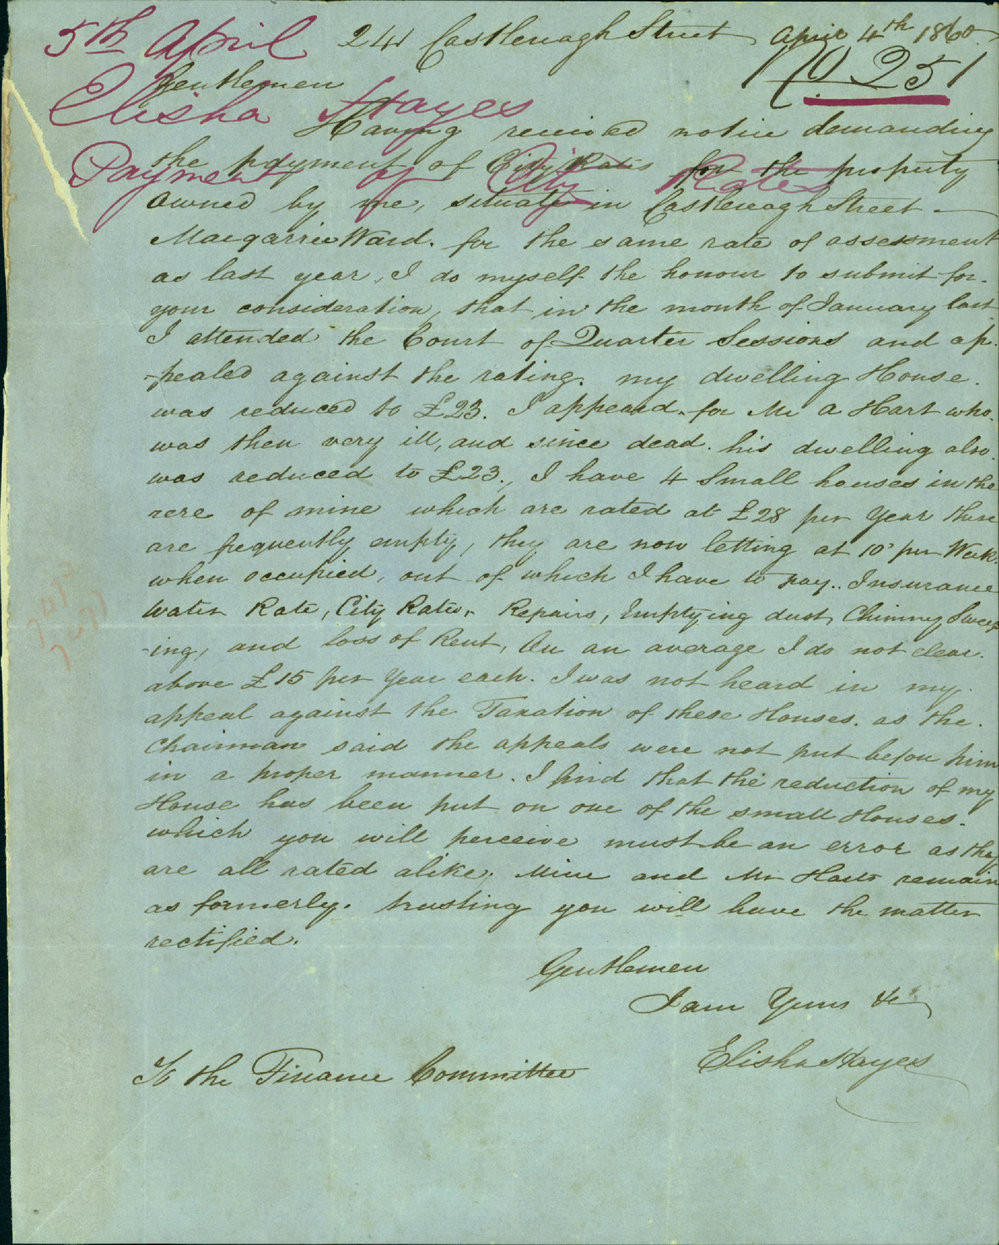 5th April
241 Castlereagh Street April 4th 1860
No 251
Gentlemen
Elisha Hayes
Having received notice demanding
Payment of City Rates
the payment of City Rates for the property
owned by me, situate in Castlereagh Street
Macquarrie Ward. for the same rate of assessment
as last year, I do myself the honour to submit for
your consideration, that in the month of January last
I attended the Court of Quarter Sessions and ap-
-pealed against the rating. my dwelling House.
was reduced to £23. I appeard for Mr A Hart who
was then very ill, and since dead. his dwelling also
was reduced to £23., I have 4 Small houses in the
rere of mine which are rated at £28 per Year these
are frequently empty, they are now letting at 10/ per Week
when occupied, out of which I have to pay.. Insurance
Water Rate, City Rates, Repairs, Emptying dust, Chimney Sweep
-ing, and loss of Rent, On an average I do not clear.
above £15 per Year each. I was not heard in my
appeal against the Taxation of these Houses. as the.
Chairman said the appeals were not put before him
in a proper manner. I find that the reduction of my
House has been put on one of the small Houses.
which you will perceive must be an error as they
are all rated alike, Mine and Mr Harts remain
as formerly. trusting you will have the matter
rectified.
Gentlemen
I am Yours &c
Elisha Hayes
To the Finance Committee